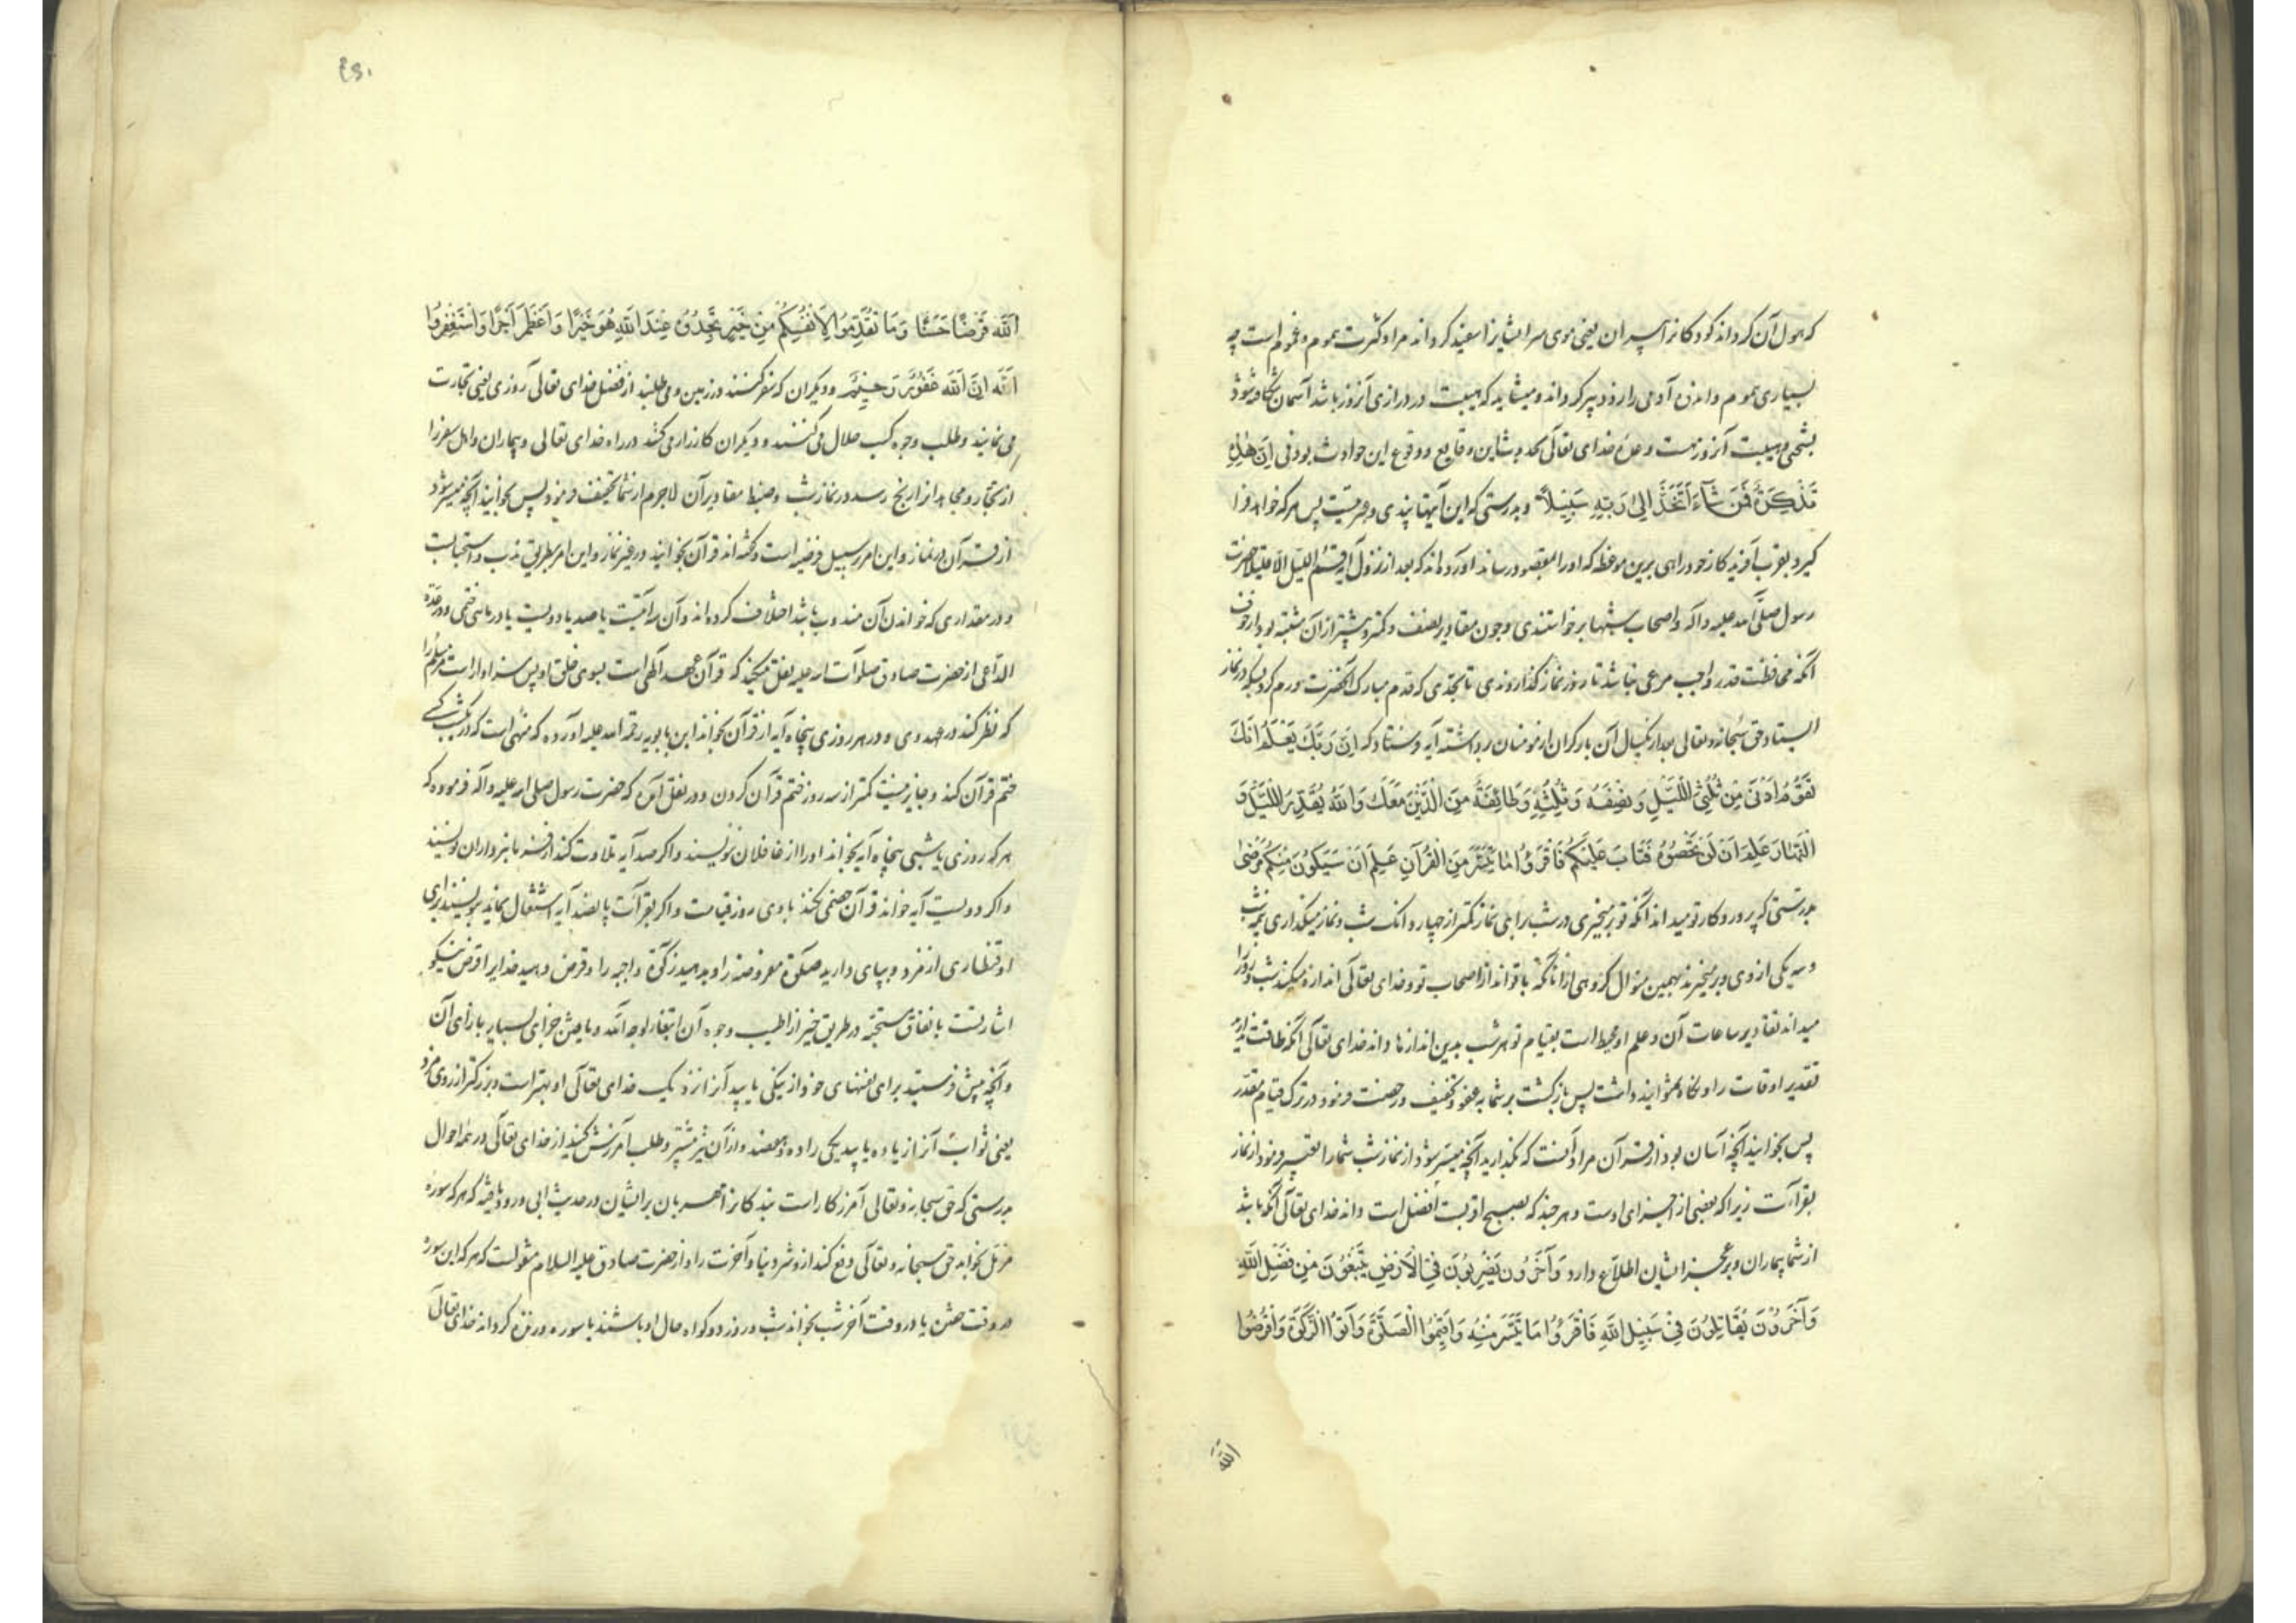 که هول آن کرداند کودکانرا پیران یعنی موی سر ایشانرا سفید کرداند مراد کثرت هموم و غموم است چه
بسیاری هموم و احزان آدمی را زود پیر کرداند و میشاید که هیبت در درازی آنروز باشد آسمان شکافته شود
بسختی و هیبت آنروز هست وعدهٔ خدای تعالی که به شاین وقایع و وقوع این حوادث بودنی اِنَّ هٰذِهِ
تَذْکِرَةٌ فَمَنْ شَآءَ اتَّخَذَ اِلیٰ رَبِّهِ سَبِیْلاً و بدرستی که این آیتها پندی و عبرتیست پس هر که خواهد فرا
کیرد بقرب آفریدکار خود راهی برین موعظه که اورا بمقصود رساند آورده‌اند که بعد از نزول آیه قُمِ اللَّیل اِلّا قلیلا حضرت
رسول صلّی الله علیه و آله و اصحاب شبها برخواستندی و چون مقادیر نصف و کمتر و بیشتر از آن مشتبه بود از خوف
آنکه محافظت قدر واجب مرعی نباشد تا روز نماز کذاردندی تا بحدی که قدم مبارک آنحضرت ورم کرد در نماز
ایستاد حق سبحانه و تعالی بعد از یکسال آن بار کران از مؤمنان برداشته آیه فرستاد که اِنَّ رَبَّکَ یَعْلَمُ اَنَّکَ
تَقُوْمُ اَدْنیٰ مِنْ ثُلُثَیِ اللَّیْلِ وَنِصْفَهُ وَثُلُثَهُ وَطَآئِفَةٌ مِنَ الَّذِیْنَ مَعَکَ وَاللّٰهُ یُقَدِّرُ اللَّیْلَ وَ
النَّهَارَ عَلِمَ اَنْ لَنْ تُحْصُوْهُ فَتَابَ عَلَیْکُمْ فَاقْرَؤُا مَا تَیَسَّرَ مِنَ الْقُرْآنِ عَلِمَ اَنْ سَیَکُوْنُ مِنْکُمْ مَرْضیٰ
بدرستی که پروردکار تو میداند آنکه تو برمیخیزی در شب برای نماز کمتر از چهار دانک شب و نماز میکذاری نیم شب
و سه یکی از وی و برمیخیزند بهمین منوال کروهی از آنانکه با تواند از اصحاب تو و خدای تعالی اندازه میکند شب و روز را
میداند مقادیر ساعات آن و علم او محیط است بقیام تو هر شب بدین اندازها داند خدای تعالی آنکه طاقت ندارید
تقدیر اوقات را و نکاه نتوانید داشت پس بازکشت بر شما بعفو و تخفیف و رخصت فرمود در ترک قیام مقدر
پس بخوانید آنچه آسان بود از قرآن مراد آنست که بکذارید آنچه میسر شود از نماز شب شما را تعبیر فرمود از نماز
بقرآءت زیرا که بعضی از اجزای اوست و هر چند که بصبح اقربست افضل است داند خدای تعالی آنکه باشد
از شما بیماران و بر عجز ایشان اطلاع دارد وَآخَرُوْنَ یَضْرِبُوْنَ فِی الْاَرْضِ یَبْتَغُوْنَ مِنْ فَضْلِ اللّٰهِ
وَآخَرُوْنَ یُقَاتِلُوْنَ فِیْ سَبِیْلِ اللّٰهِ فَاقْرَؤُا مَا تَیَسَّرَ مِنْهُ وَاَقِیْمُوا الصَّلٰوةَ وَآتُوا الزَّکٰوةَ وَاَقْرِضُوا
اللّٰه
اللّٰهَ قَرْضًا حَسَنًا وَمَا تُقَدِّمُوْا لِاَنْفُسِکُمْ مِنْ خَیْرٍ تَجِدُوْهُ عِنْدَ اللّٰهِ هُوَ خَیْرًا وَاَعْظَمَ اَجْرًا وَاسْتَغْفِرُوا
اللّٰهَ اِنَّ اللّٰهَ غَفُوْرٌ رَحِیْمٌ و دیکران که سفر کنند در زمین و می‌طلبند از فضل خدای تعالی روزی یعنی تجارت
می نمایند و طلب وجوه کسب حلال می کنند و دیکران کارزار می کنند در راه خدای تعالی و بیماران و اهل سفر را
از تجار و مجاهد از رنج رسد در نماز شب و ضبط مقادیر آن لاجرم از شما تخفیف فرمود پس بخوانید آنچه میسر شود
از قرآن در نماز و این امر بر سبیل فرضیه است و کفته‌اند قرآن بخوانید در غیر نماز و این امر بطریق ندب و استحبابست
و در مقداری که خواندن آن مندوب باشد اختلاف کرده‌اند و آن سه آیتست یا صد یا دویست یا در ماهی ختمی و در عدة
الداعی از حضرت صادق صلوات الله علیه نقل میکند که قرآن عهد آلهی است بسوی خلق او پس سزاوار است مر مسلم را
که نظر کند در عهد وی و در هر روزی پنجاه آیه از قرآن بخواند ابن بابویه رحمه الله علیه آورده که منهی است که در یکشب کسی
ختم قرآن کند و جایز نیست کمتر از سه روز ختم قرآن کردن و در نقل آمده که حضرت رسول صلی الله علیه و آله فرموده که
هر که روزی یا شبی پنجاه آیه بخواند اورا از غافلان ننویسند و اکر صد آیه تلاوت کند از فرمانبرداران نویسند
و اکر دویست آیه خواند قرآن خصمی نکند با وی روز قیامت و اکر بقرآئت پانصد آیه اشتغال نماید بنویسند برای
او قنطاری از مزد و بپای دارید صلوة مفروضه را و بدهید زکوة واجبه را و قرض دهید خدایرا قرض نیکو
اشارتست بانفاق مستحبه در طریق خیر از اطیب وجوه آن ابتغاء لوجه الله و یافتن جزای بسیار بازای آن
و آنچه پیش فرستید برای نفسهای خود از نیکی یابید آنرا نزدیک خدای تعالی او بهتر است و بزرکتر از روی مزد
یعنی ثواب آنرا زیاده یابید یکی را ده و هفتصد و از آن نیز بیشتر و طلب آمرزش کنید از خدای تعالی در همه احوال
بدرستی که حق سبحانه و تعالی آمرزکار است بندکانرا مهربان بر ایشان در حدیث ابی ورود یافته که هر که سورهٔ
مزمل بخواند حق سبحانه و تعالی دفع کند از و شر دنیا و آخرت را و از حضرت صادق علیه السلام منقولست که هر که این سوره
در وقت خفتن یا در وقت آخر شب بخواند شب و روز دو کواه حال او باشند با سوره و زنده کرداند خدای تعالی